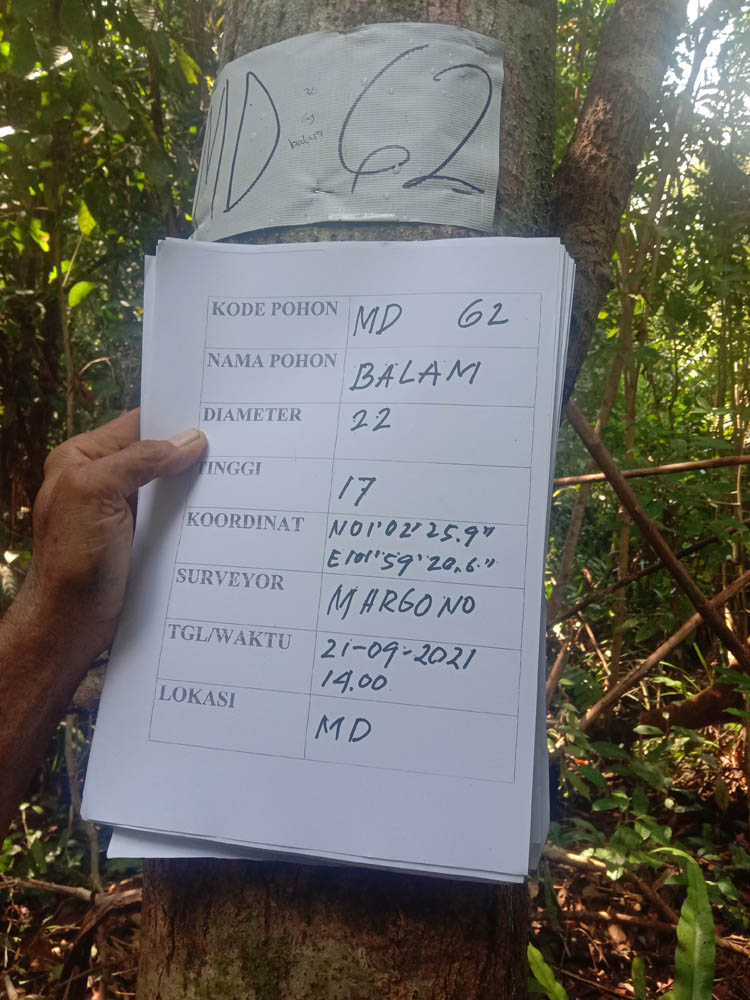 MD 62
KODE POHON MD 62
NAMA POHON BALAM
DIAMETER 22
TINGGI 17
KOORDINAT N01°02'25.9"
E101°59'20.6"
SURVEYOR MARGONO
TGL/WAKTU 21-09-2021
14.00
LOKASI MD